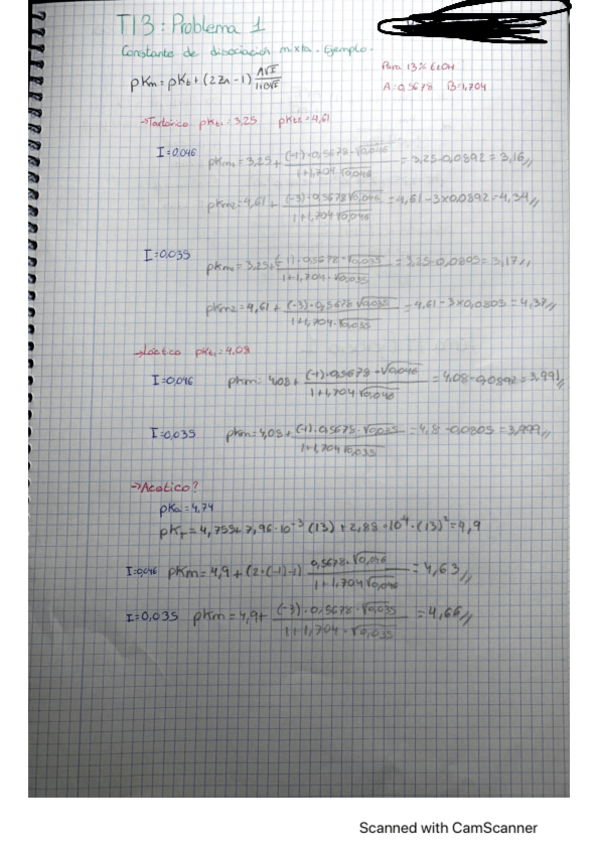 T13: Problema 1
Constante de disociación mixta. Ejemplo.
pKm = pKt + (2Zn-1) A√I / 1+B√I
Para 13% EtOH
A: 0,5678 B=1,704
→Tartárico pKt1 = 3,25 pKt2 = 4,61
I = 0,046 pKm1 = 3,25 + (-1)·0,5678·√0,046 / 1+1,704·√0,046 = 3,25-0,0892 = 3,16//
pKm2 = 4,61 + (-3)·0,5678√0,046 / 1+1,704√0,046 = 4,61-3x0,0892 = 4,34//
I = 0,035 pKm1 = 3,25 + (-1)·0,5678·√0,035 / 1+1,704·√0,035 = 3,25-0,0805 = 3,17//
pKm2 = 4,61 + (-3)·0,5678√0,035 / 1+1,704·√0,035 = 4,61-3x0,0805 = 4,37//
→Láctico pKt1 = 4,08
I = 0,046 pKm = 4,08 + (-1)·0,5678·√0,046 / 1+1,704√0,046 = 4,08-0,0892 = 3,991//
I = 0,035 pKm = 4,08 + (-1)·0,5678·√0,035 / 1+1,704√0,035 = 4,8-0,0805 = 3,999//
→Acético?
pKa = 4,74
pKT = 4,755+7,96·10⁻³ (13) + 2,88·10⁻⁴·(13)² = 4,9
I = 0,046 pKm = 4,9 + (2·(-1)-1) 0,5678·√0,046 / 1+1,704√0,046 = 4,63//
I = 0,035 pKm = 4,9 + (-3)·0,5678·√0,035 / 1+1,704·√0,035 = 4,66//
Scanned with CamScanner